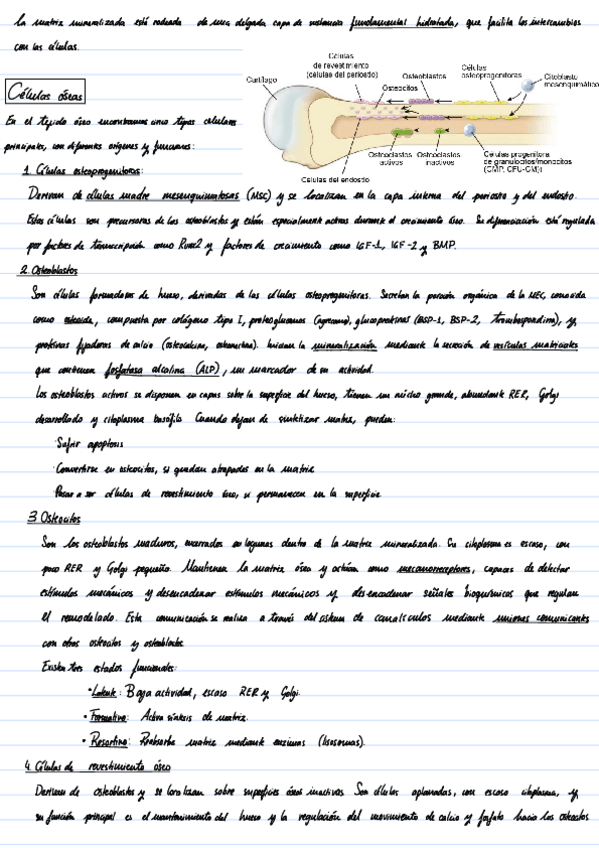 La matriz mineralizada está rodeada de una delgada capa de sustancia fundamental hidratada, que facilita los intercambios
con las células.
Células óseas
En el tejido óseo encontramos cinco tipos celulares
principales, con diferentes orígenes y funciones:
Cartílago
Células
de revestimiento
(células del periostio)
Osteocitos
Osteoblastos
Células
osteoprogenitoras
Citoblasto
mesenquimático
Osteoclastos
activos
Osteoclastos
inactivos
Células progenitora
de granulocitos/monocitos
(CMP, CFU-GM))
Células del endostio
1. Células osteoprogenitoras:
Derivan de células madre mesenquimatosas (MSC) y se localizan en la capa interna del periostio y del endostio.
Estas células son precursoras de los osteoblastos y están especialmente activas durante el crecimiento óseo. Su diferenciación está regulada
por factores de transcripción como Runx2 y factores de crecimiento como IGF-1, IGF-2 y BMP.
2. Osteoblastos
Son células formadoras de hueso, derivadas de las células osteoprogenitoras. Secretan la porción orgánica de la MEC, conocida
como osteoide, compuesta por colágeno tipo I, proteoglucanos (agrecano), glucoproteínas (BSP-1, BSP-2, trombospondina), y
proteínas fijadoras de calcio (osteocalcina, osteonectina). Inician la mineralización mediante la secreción de vesículas matriciales
que contienen fosfatasa alcalina (ALP), un marcador de su actividad.
Los osteoblastos activos se disponen en capas sobre la superficie del hueso, tienen un núcleo grande, abundante RER, Golgi
desarrollado y citoplasma basófilo. Cuando dejan de sintetizar matriz, pueden:
· Sufrir apoptosis
· Convertirse en osteocitos, si quedan atrapados en la matriz
· Pasar a ser células de revestimiento óseo, si permanecen en la superficie
3. Osteocitos
Son los osteoblastos maduros, encerrados en lagunas dentro de la matriz mineralizada. Su citoplasma es escaso, con
poco RER y Golgi pequeño. Mantienen la matriz ósea y actúan como mecanorreceptores, capaces de detectar
estímulos mecánicos y desencadenar estímulos mecánicos y desencadenar señales bioquímicas que regulan
el remodelado. Esta comunicación se realiza a través del sistema de canalículos mediante uniones comunicantes
con otros osteocitos y osteoblastos.
Existen tres estados funcionales:
• Latente: Baja actividad, escaso RER y Golgi.
• Formativo: Activa síntesis de matriz.
• Resortivo: Reabsorbe matriz mediante enzimas (lisosomas).
4. Células de revestimiento óseo
Derivan de osteoblastos y se localizan sobre superficies óseas inactivas. Son células aplanadas, con escaso citoplasma, y
su función principal es el mantenimiento del hueso y la regulación del movimiento de calcio y fosfato hacia los osteocitos